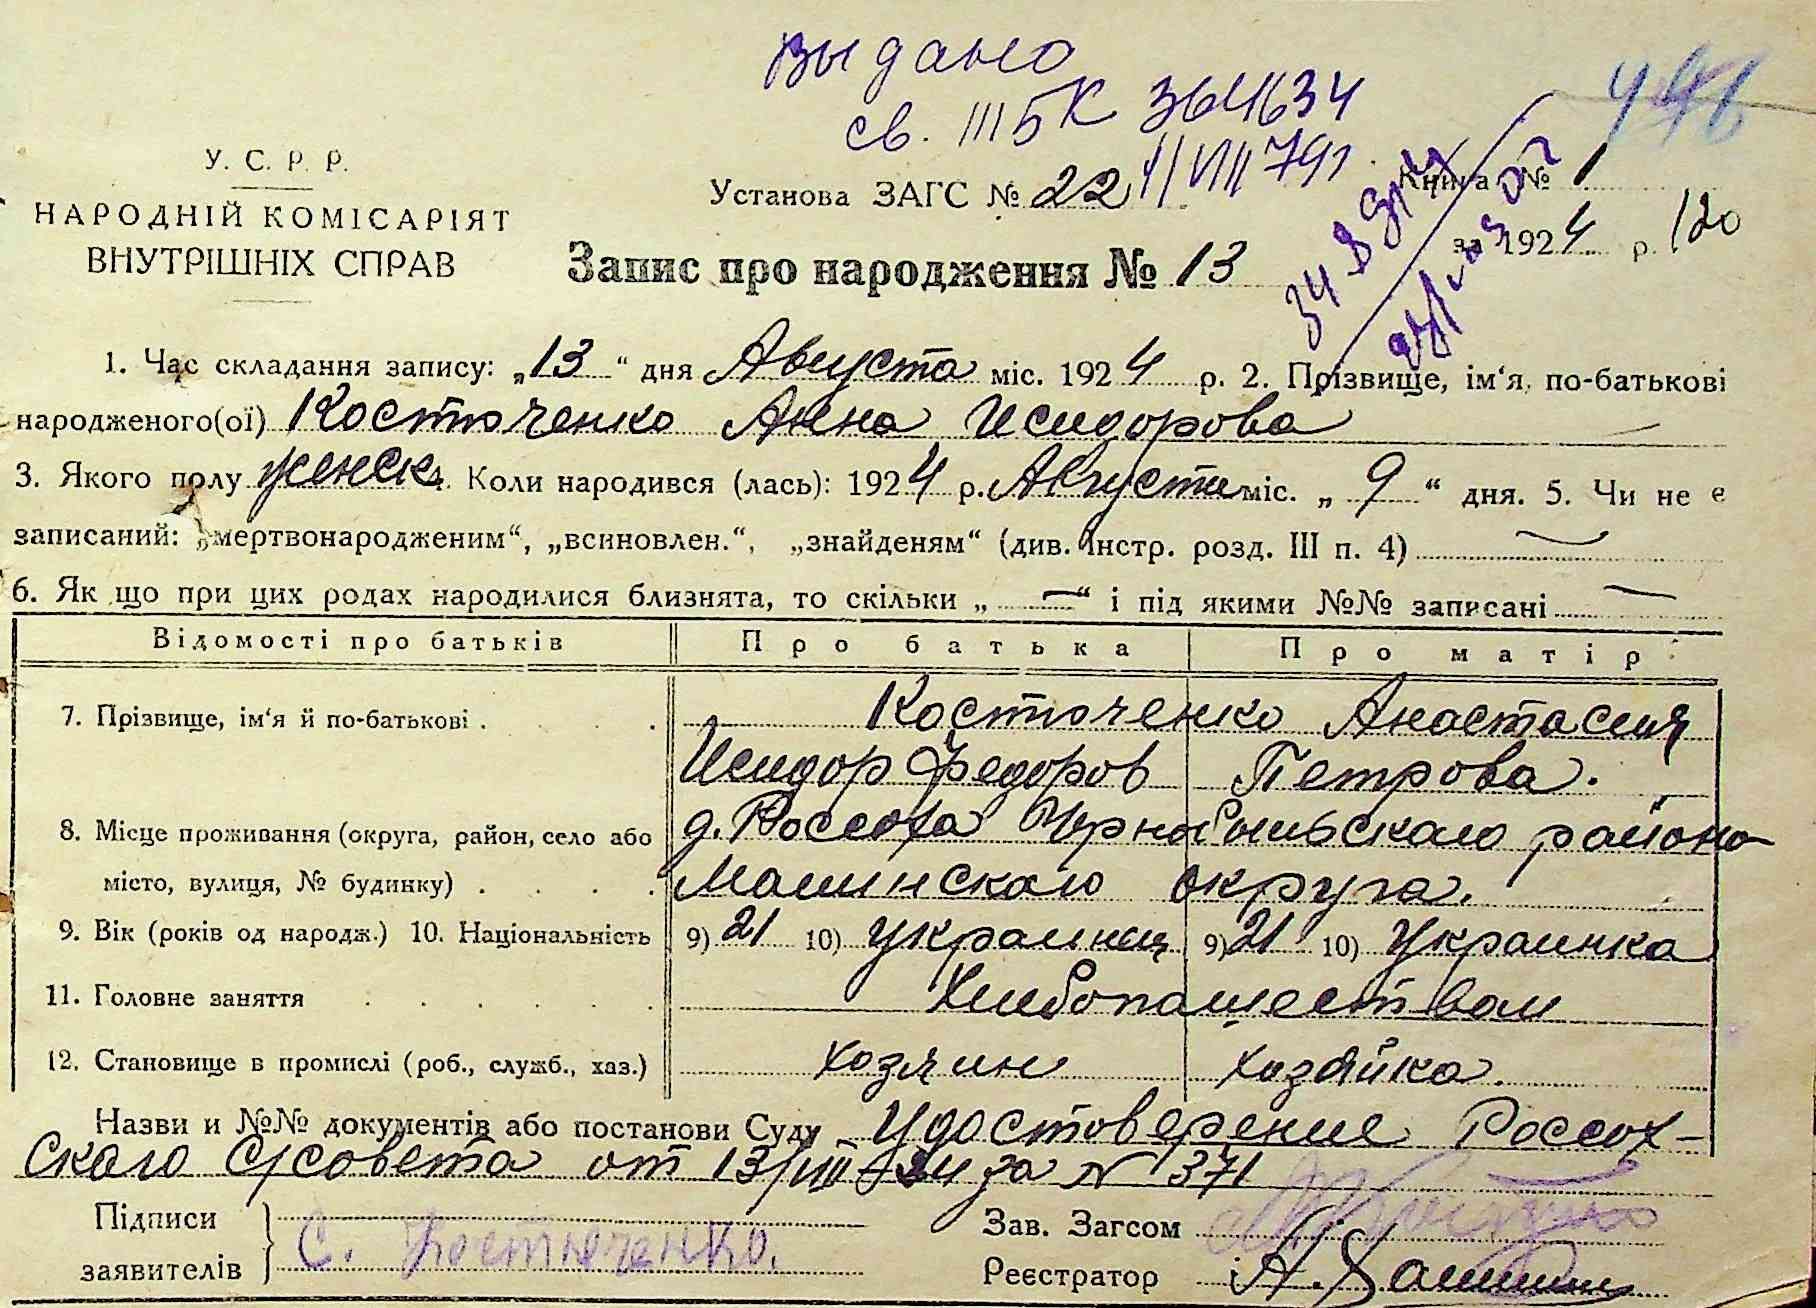 Выдано
св. III БК 364634
11/VIII 79г.
У. С. Р. Р.
НАРОДНІЙ КОМІСАРІЯТ
ВНУТРІШНІХ СПРАВ
Установа ЗАГС № 22
Книга № 1
за 1924 р. 120
Запис про народження № 13
1. Час складання запису: „13“ дня Августа міс. 1924 р. 2. Прізвище, ім‘я, по-батькові
народженого(ої) Костюченко Анна Исидорова
3. Якого полу женск. 4. Коли народився (лась): 1924 р. Августа міс. „9“ дня. 5. Чи не є
записаний: „мертвонародженим“, „всиновлен.“, „знайденям“ (див. Інстр. розд. III п. 4)
6. Як що при цих родах народилися близнята, то скільки „—“ і під якими №№ записані —
Відомості про батьків Про батька Про матір
7. Прізвище, ім‘я й по-батькові Костюченко Анастасия
Исидор Федоров Петрова.
8. Місце проживання (округа, район, село або д. Россоха Чернобыльскаго района
місто, вулиця, № будинку) Малинскаго округа.
9. Вік (років од народж.) 10. Національність 9) 21 10) украинец 9) 21 10) Украинка
11. Головне заняття Хлебопашеством
12. Становище в промислі (роб., служб., хаз.) хозяин хозяйка.
Назви и №№ документів або постанови Суду Удостоверение Россох-
скаго С/совета от 13/VIII-24 за № 371
Підписи
заявителів С. Костюченко.
Зав. Загсом
Реєстратор